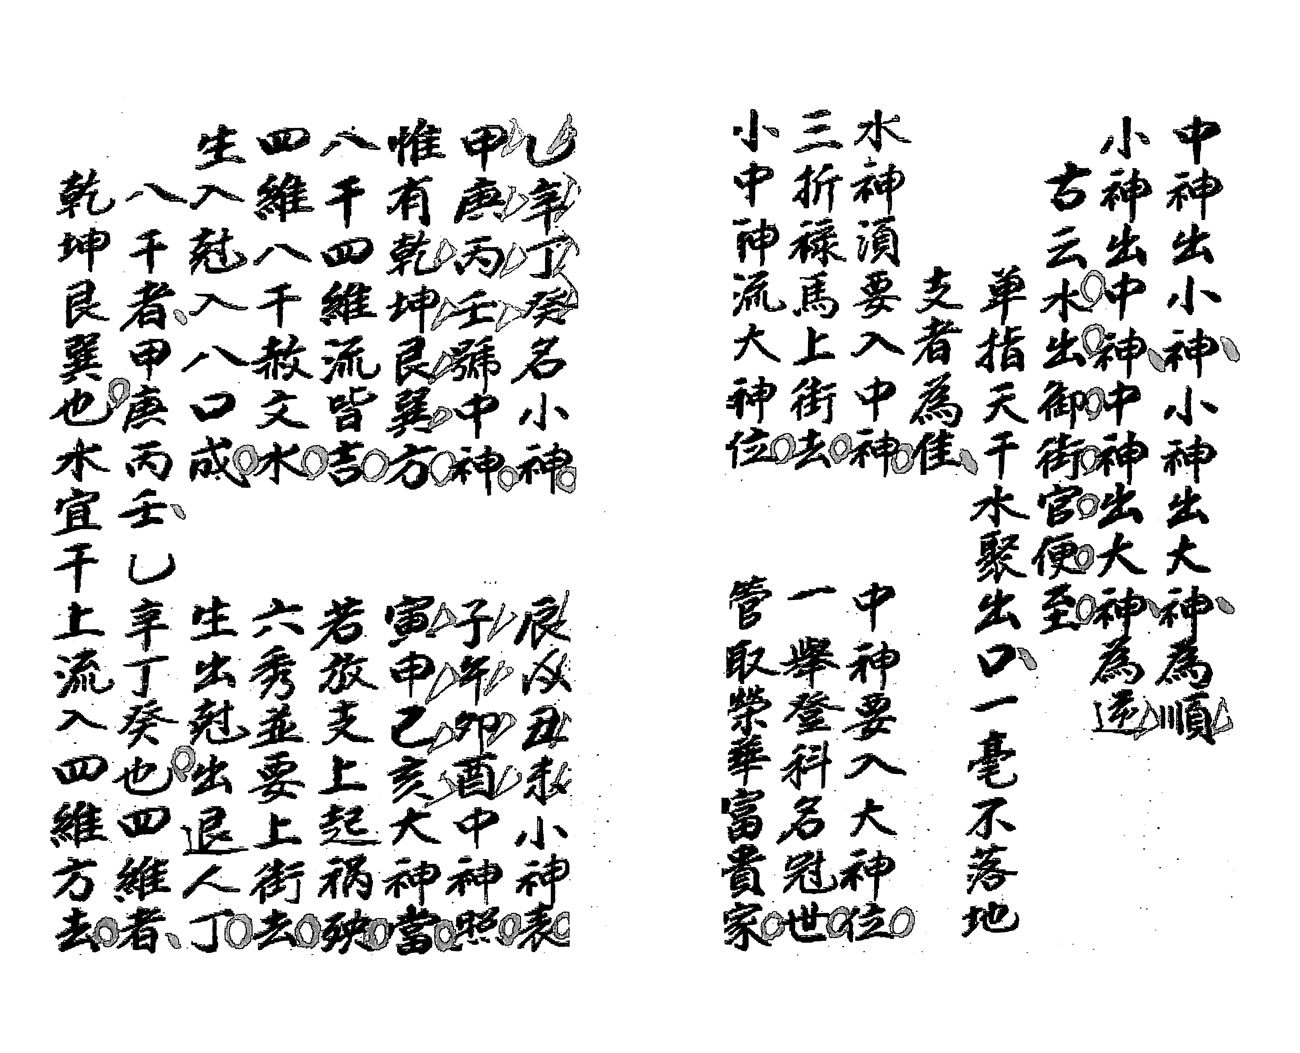 中神出小神小神出大神為順
小神出中神中神出大神為逆
古云水出御街官便至
单指天干水聚出口一毫不落地
支者為佳
水神須要入中神 中神要入大神位
三折祿馬上街去 一舉登科名冠世
小中神流大神位 管取榮華富貴家
乙辛丁癸名小神 辰戌丑未小神表
甲庚丙壬號中神 子午卯酉中神照
惟有乾坤艮巽方 寅申己亥大神當
八干四維流皆吉 若放支上起禍殃
四維八干赦文水 六秀並要上街去
生入尅入八口成 生出尅出退人丁
八干者甲庚丙壬乙辛丁癸也四維者
乾坤艮巽也水宜干上流入四維方去